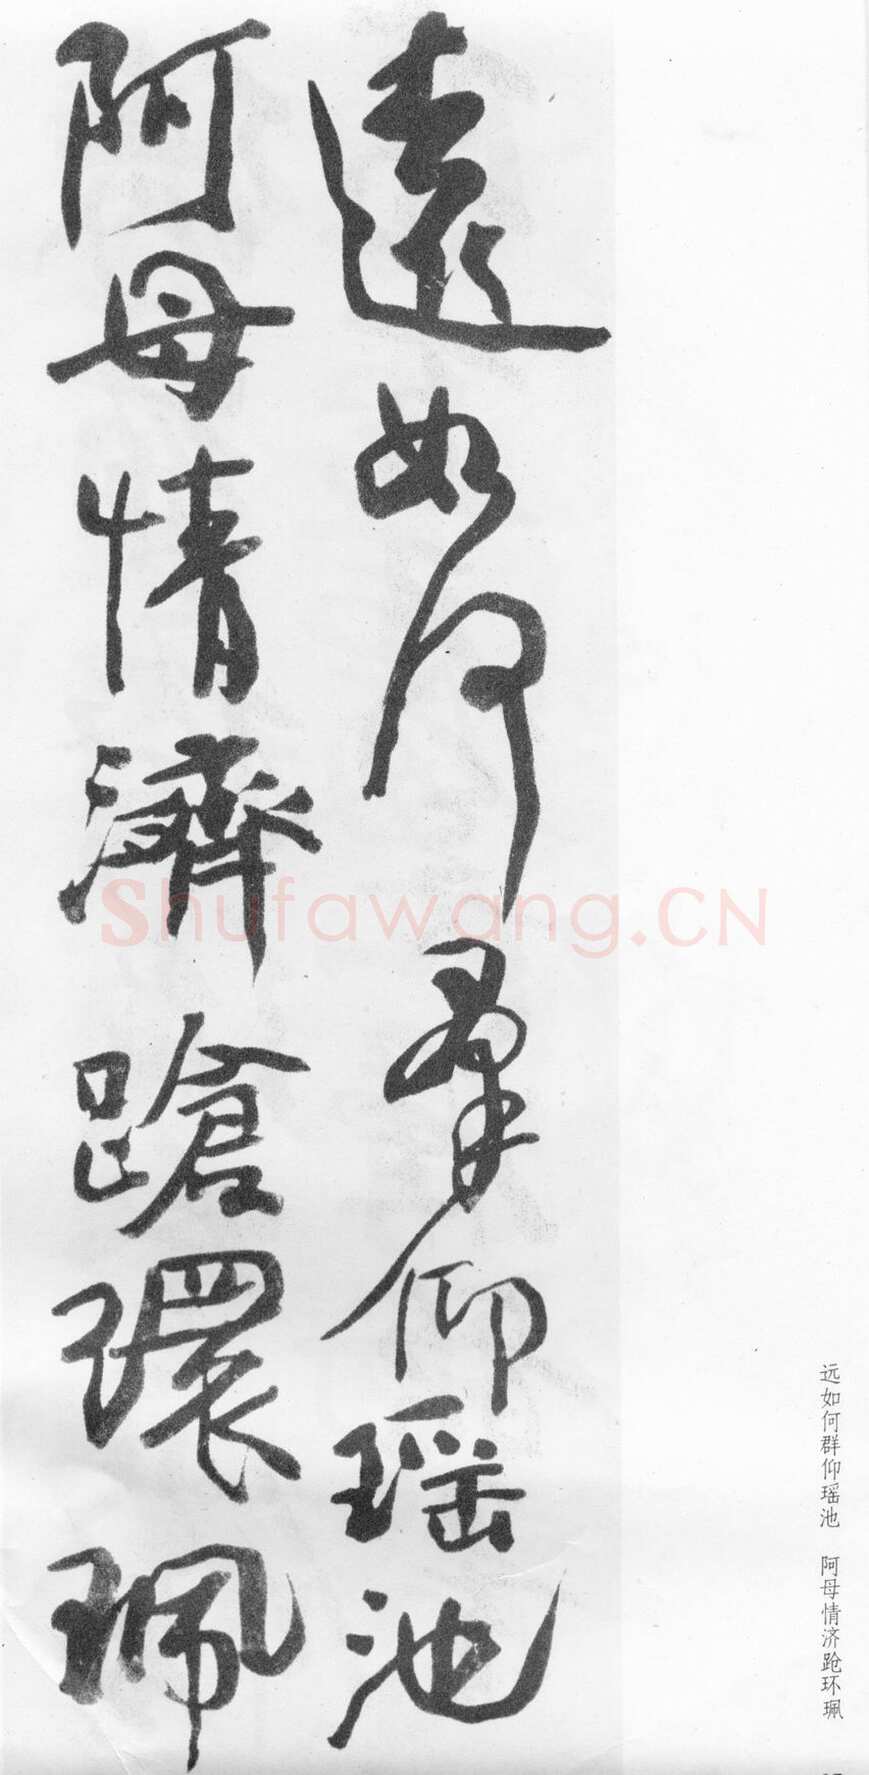 遠如何羣仰瑶池
阿母情濟蹌環珮
远如何群仰瑶池 阿母情济跄环珮
Shufawang.CN